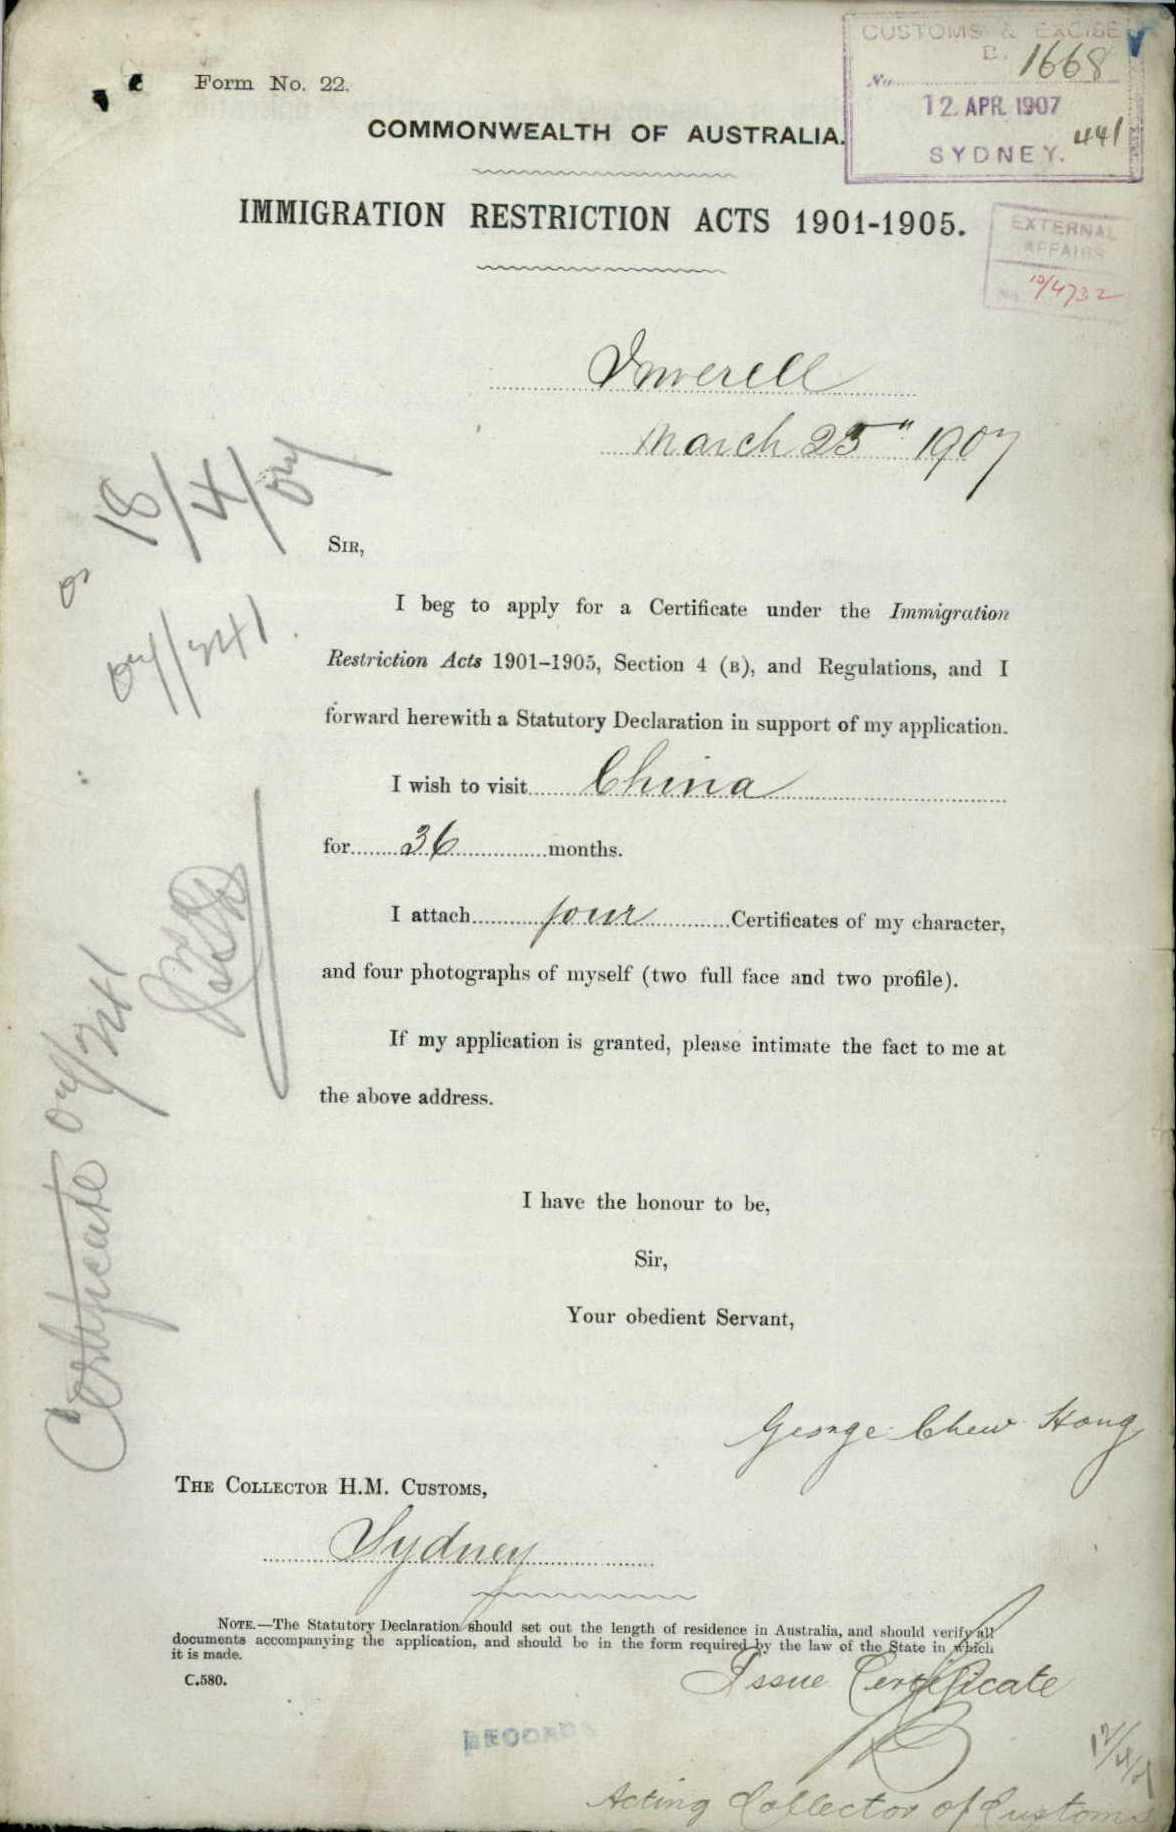 CUSTOMS & EXCISE
No. 1668
12. APR. 1907
441
SYDNEY.
Form No. 22.
COMMONWEALTH OF AUSTRALIA.
IMMIGRATION RESTRICTION ACTS 1901-1905.
EXTERNAL
AFFAIRS
10/4732
Inverell
March 25" 1907
18/4/07
07/241
SIR,
I beg to apply for a Certificate under the Immigration
Restriction Acts 1901-1905, Section 4 (B), and Regulations, and I
forward herewith a Statutory Declaration in support of my application.
I wish to visit China
for 36 months.
I attach four Certificates of my character,
and four photographs of myself (two full face and two profile).
If my application is granted, please intimate the fact to me at
the above address.
Certificate 07/241
I have the honour to be,
Sir,
Your obedient Servant,
George Chew Hong
THE COLLECTOR H.M. CUSTOMS,
Sydney
NOTE.—The Statutory Declaration should set out the length of residence in Australia, and should verify all
documents accompanying the application, and should be in the form required by the law of the State in which
it is made.
C.580.
Issue Certificate
RECORDS
12/4/07
Acting Collector of Customs